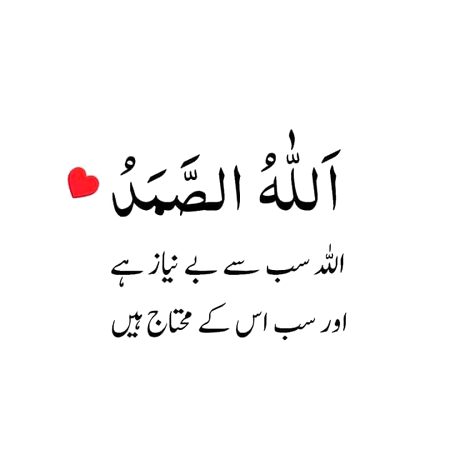 اَللّٰهُ الصَّمَدُ
اللہ سب سے بے نیاز ہے
اور سب اس کے محتاج ہیں